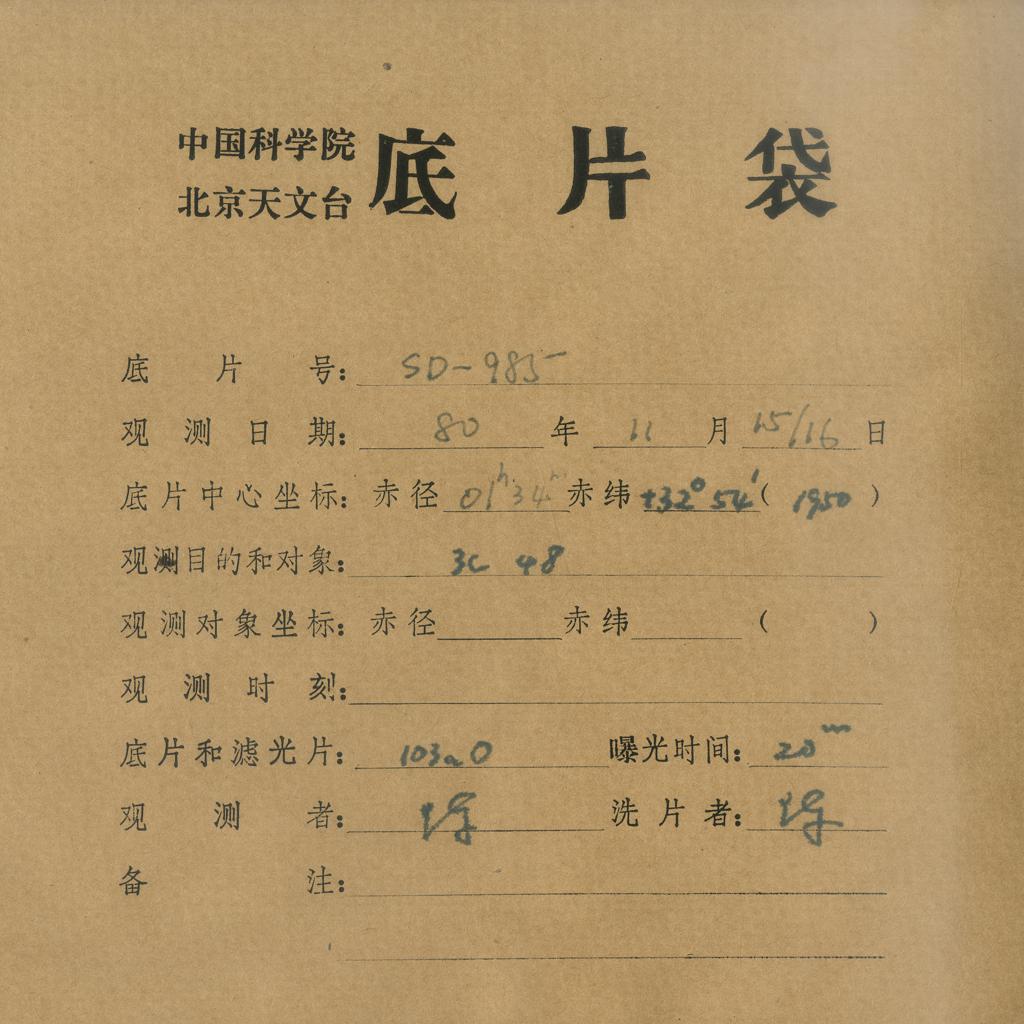 中国科学院
北京天文台 底片袋
底片号: SD-985
观测日期: 80年 11月 15/16日
底片中心坐标: 赤径 01h34m 赤纬 +32°54′ (1950)
观测目的和对象: 3C 48
观测对象坐标: 赤径 赤纬 ( )
观测时刻:
底片和滤光片: 103aO 曝光时间: 20m
观测者: 洗片者:
备注: